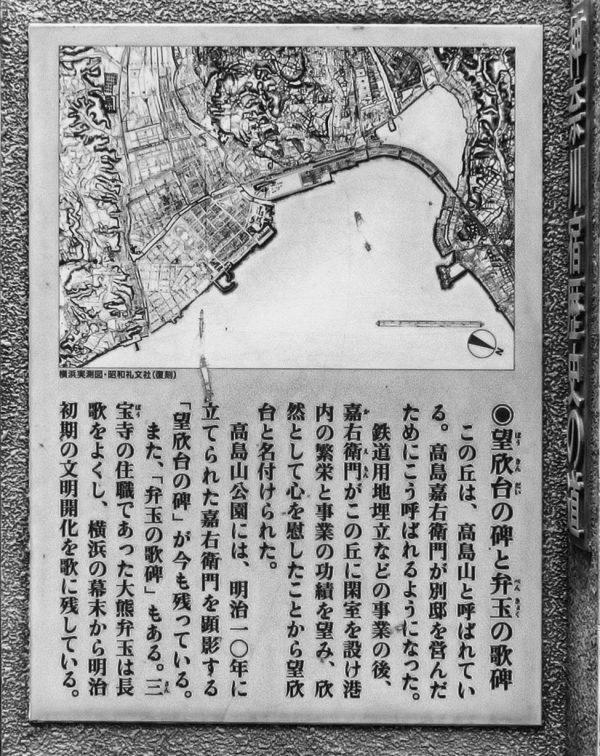 横浜実測図・昭和礼文社(復刻)
●望欣台の碑と弁玉の歌碑
この丘は、高島山と呼ばれてい
る。高島嘉右衛門が別邸を営んだ
ためにこう呼ばれるようになった。
鉄道用地埋立などの事業の後、
嘉右衛門がこの丘に閑室を設け港
内の繁栄と事業の功績を望み、欣
然として心を慰したことから望欣
台と名付けられた。
高島山公園には、明治一〇年に
立てられた嘉右衛門を顕彰する
「望欣台の碑」が今も残っている。
また、「弁玉の歌碑」もある。三
宝寺の住職であった大熊弁玉は長
歌をよくし、横浜の幕末から明治
初期の文明開化を歌に残している。
N